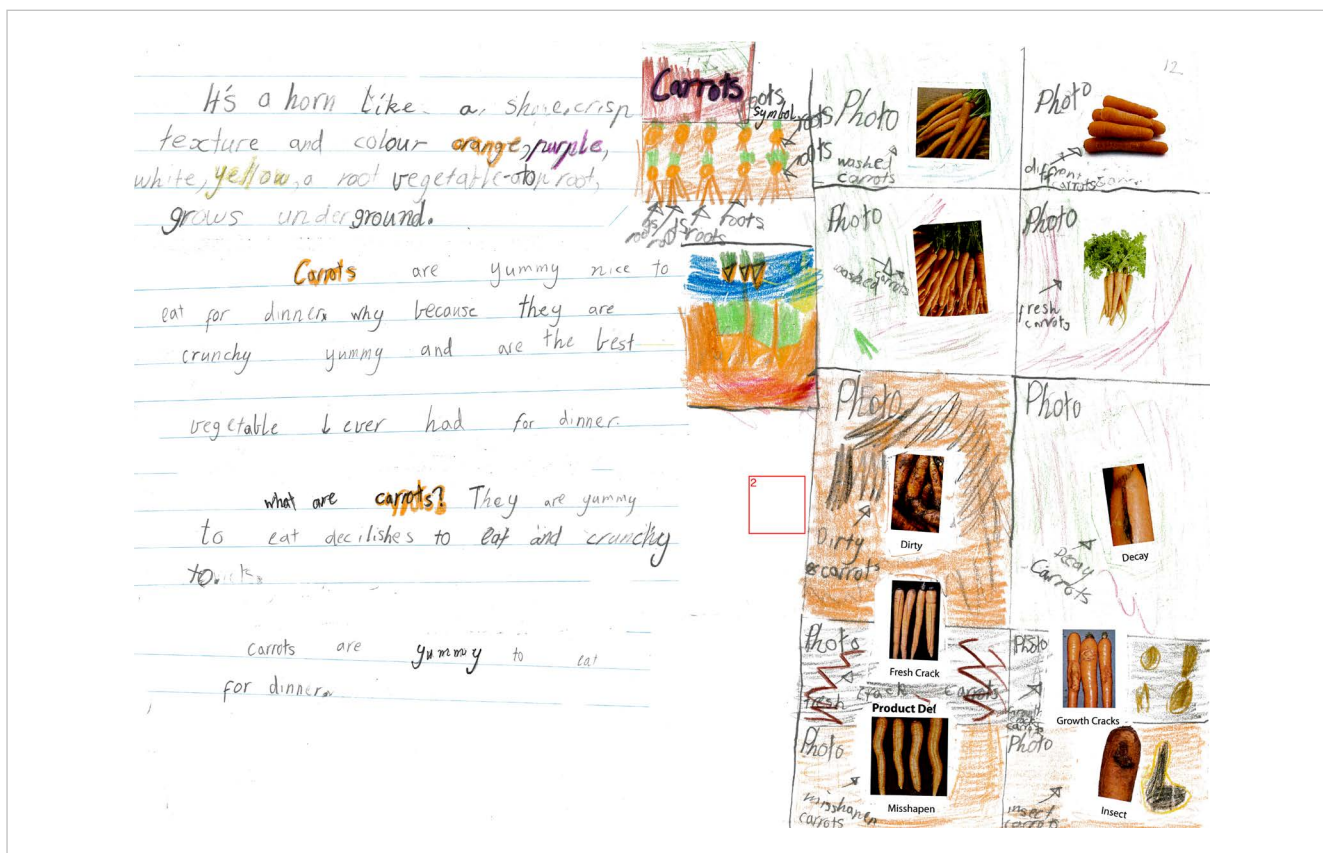 It's a horn like a shape, crisp
texture and colour orange, purple,
white, yellow, a root vegetable root,
grows underground.
Carrots are yummy nice to
eat for dinner. why because they are
crunchy yummy and are the best
vegetable I ever had for dinner.
what are carrots? They are yummy
to eat decilishes to eat and crunchy
to
carrots are yummy to eat
for dinner.
Carrots
symbol
roots
roots
roots
roots
roots
Photo
washed
carrots
12
Photo
diffront
carrots
Photo
washed carrots
Photo
fresh
carrots
Photo
Dirty
Dirty
carrots
Photo
Decay
Decay
Carrots
2
Photo
Fresh Crack
fresh crack carrots
Product Def
Photo
Growth Cracks
growth
crack
carrots
Photo
Misshapen
misshapen
carrots
Photo
Insect
insect
carrots